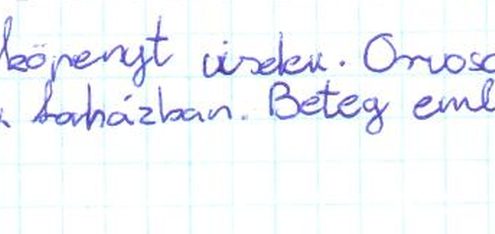 köpenyt viselek. Orvos
korházban. Beteg eml